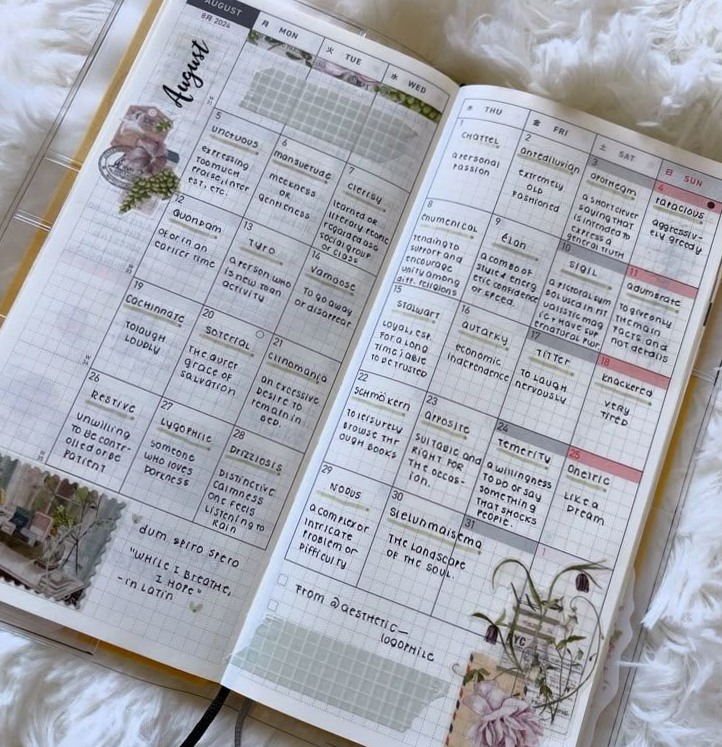 AUGUST
8月 2024
August
月 MON
火 TUE
水 WED
5
unctuous
expressing
too much
praise, inter
est, etc.
6
mansuetude
meekness
or
gentleness
7
clerisy
learned or
literary people
regarded as a
social group
or class
12
quondam
of or in an
earlier time
13
Tyro
a person who
is new to an
activity
14
vamoose
To go away
or disappear
19
cachinnate
To laugh
Loudly
20
soterial
The outer
grace of
salvation
21
clinomania
an excessive
desire to
remain in
bed.
26
Restive
unwilling
to be contr-
olled or be
patient
27
Lygophile
someone
who loves
darkness
28
Drizziosis
Distinctive
calmness
one feels
listening to
Rain
dum spiro spero
"While I breathe,
I hope"
-in Latin
木 THU
金 FRI
土 SAT
日 SUN
1
chattel
a personal
passion
2
antediluvian
extremely
old
fashioned
3
apothegm
a short clever
saying that
is intended to
express a
general truth
4
rapacious
aggressiv-
ely greedy
8
ecumenical
tending to
support and
encourage
unity among
diff. religions
9
élan
a combo of
style & energ
etic confidence
or speed.
10
sigil
11
adumbrate
To give only
The main
facts and
not details
15
stalwart
loyal, esp.
for a long
time; able
to be trusted
16
autarky
economic
independence
17
Titter
To laugh
nervously
18
knackered
very
tired
22
schmökern
To leisurely
browse thr
ough books
23
apposite
suitable and
right for
the occas-
ion.
24
Temerity
a willingness
to do or say
something
that shocks
people.
25
oneiric
Like a
Dream
29
nodus
a complex or
intricate
problem or
difficulty
30
sielunmaisema
The landscape
of the soul.
31
1
From @aesthetic_
logophile
NYC